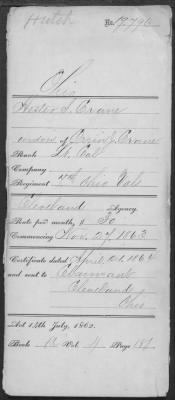 No. 17796
Ohio
Hester T. Crane
widow of Orrin J. Crane
Rank Lt. Col
Company
Regiment 7th Ohio Vols
Cleveland Agency.
Rate per month, $ 30
Commencing Nov. 27 1863
Certificate dated April 21 1864
and sent to Claimant
Cleveland
Ohio
Act 14th July, 1862.
Book B Vol. 4 Page 181